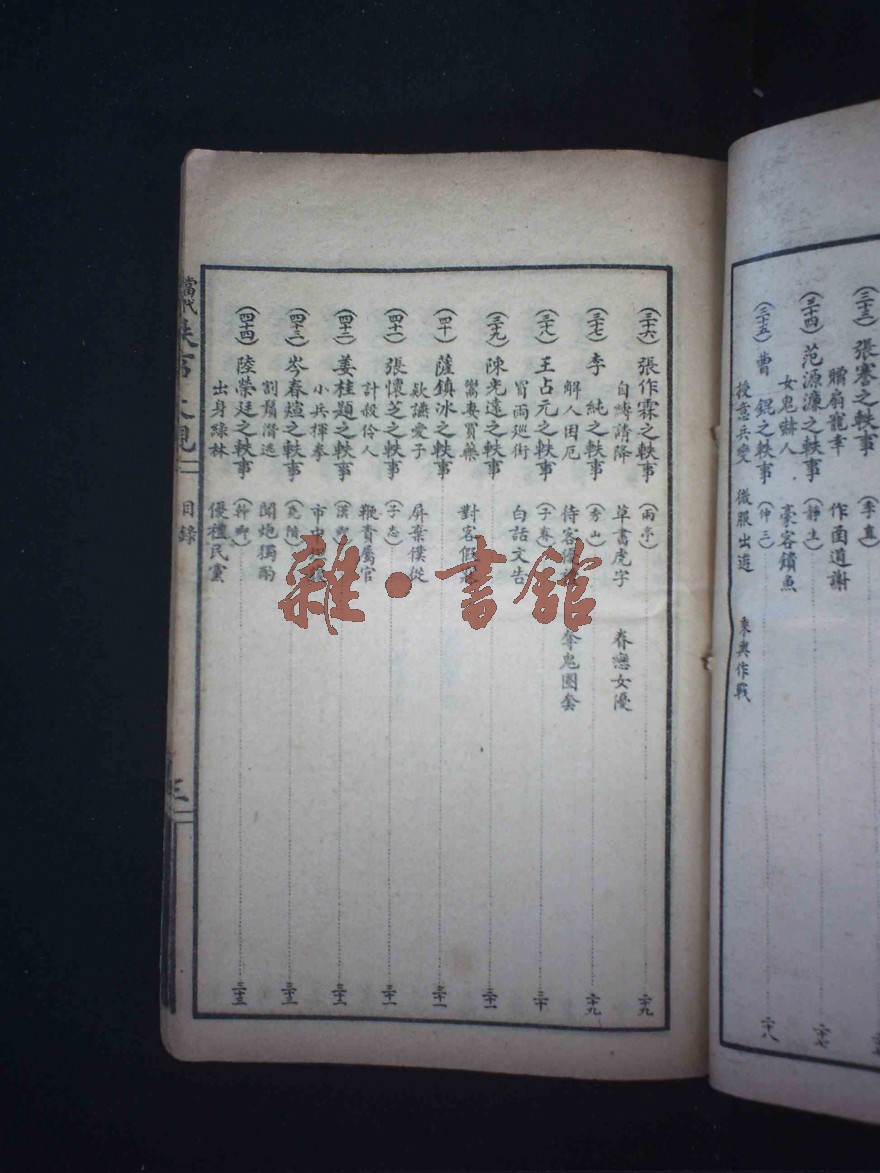 (三十三)張謇之軼事
(季直)
贈扇寵幸 作函道謝
(三十四)范源濂之軼事
(靜生)
二十七
女鬼嚇人 豪客鑽魚
(三十五)曹 錕之軼事
(仲三)
二十八
授意兵變 微服出遊 乘輿作戰
(三十六)張作霖之軼事
(雨亭)
二十九
自縛請降 草書虎字 眷戀女優
(三十七)李 純之軼事
(秀山)
二十九
解人困厄 待客 鬼圈套
(三十八)王占元之軼事
(子春)
三十
冒雨廵街 白話文告
(三十九)陳光遠之軼事
三十一
鬻妻買藥 對客假
(四十)薩鎮冰之軼事
三十一
歎讌愛子 屏棄僕從
(四十一)張懷芝之軼事
(子志)
三十一
計殺伶人 鞭責屬官
(四十二)姜桂題之軼事
(漢卿)
三十二
小兵揮拳 市中
(四十三)岑春煊之軼事
(堯階)
三十三
割鬚潛逃 聞炮獨酌
(四十四)陸榮廷之軼事
(幹卿)
三十三
出身綠林 優禮民黨
當代軼官大觀 目錄 三
雜·書館